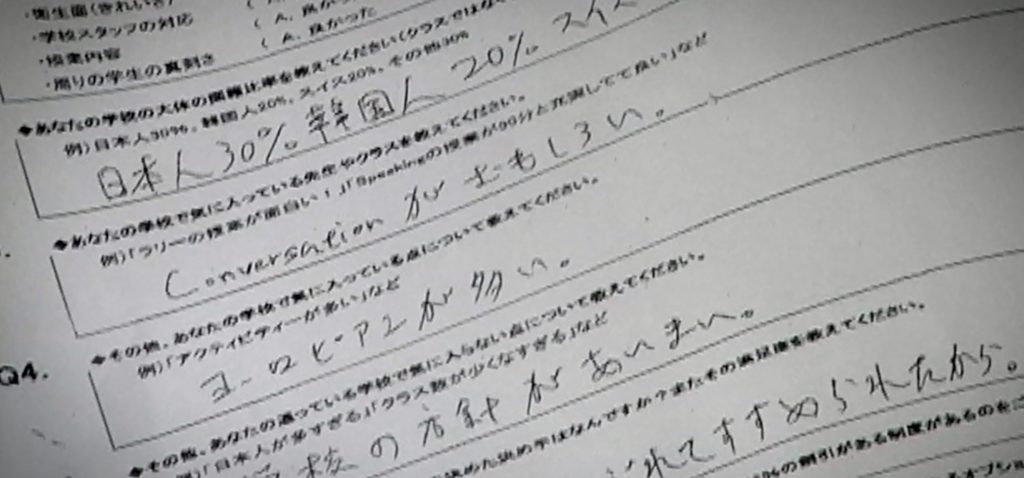 ・衛生面（きれいさ）
・学校スタッフの対応 （ A. 良かった
・授業内容 （ A. 良かった
・周りの学生の真剣さ
◆あなたの学校の大体の国籍比率を教えてください（クラスではな
例）日本人30%、韓国人20%、スイス20%、その他30%
日本人30% 韓国人 20% スイス
◆あなたの学校で気に入っている先生やクラスを教えてください。
例）「ラリーの授業が面白い！」「Speakingの授業が90分と充実してて良い」など
Conversation がおもしろい。
◆その他、あなたの学校で気に入っている点について教えてください。
例）「アクティビティーが多い」など
ヨーロピアンが多い。
Q4.
◆その他、あなたの通っている学校で気に入らない点について教えてください。
例）「日本人が多すぎる」「クラス数が少くなすぎる」など
校の方針があいまい。
決めた決め手はなんですか？またその満足度を教えてください。
れてすすめられたから。
%の割引がある制度があるのをご